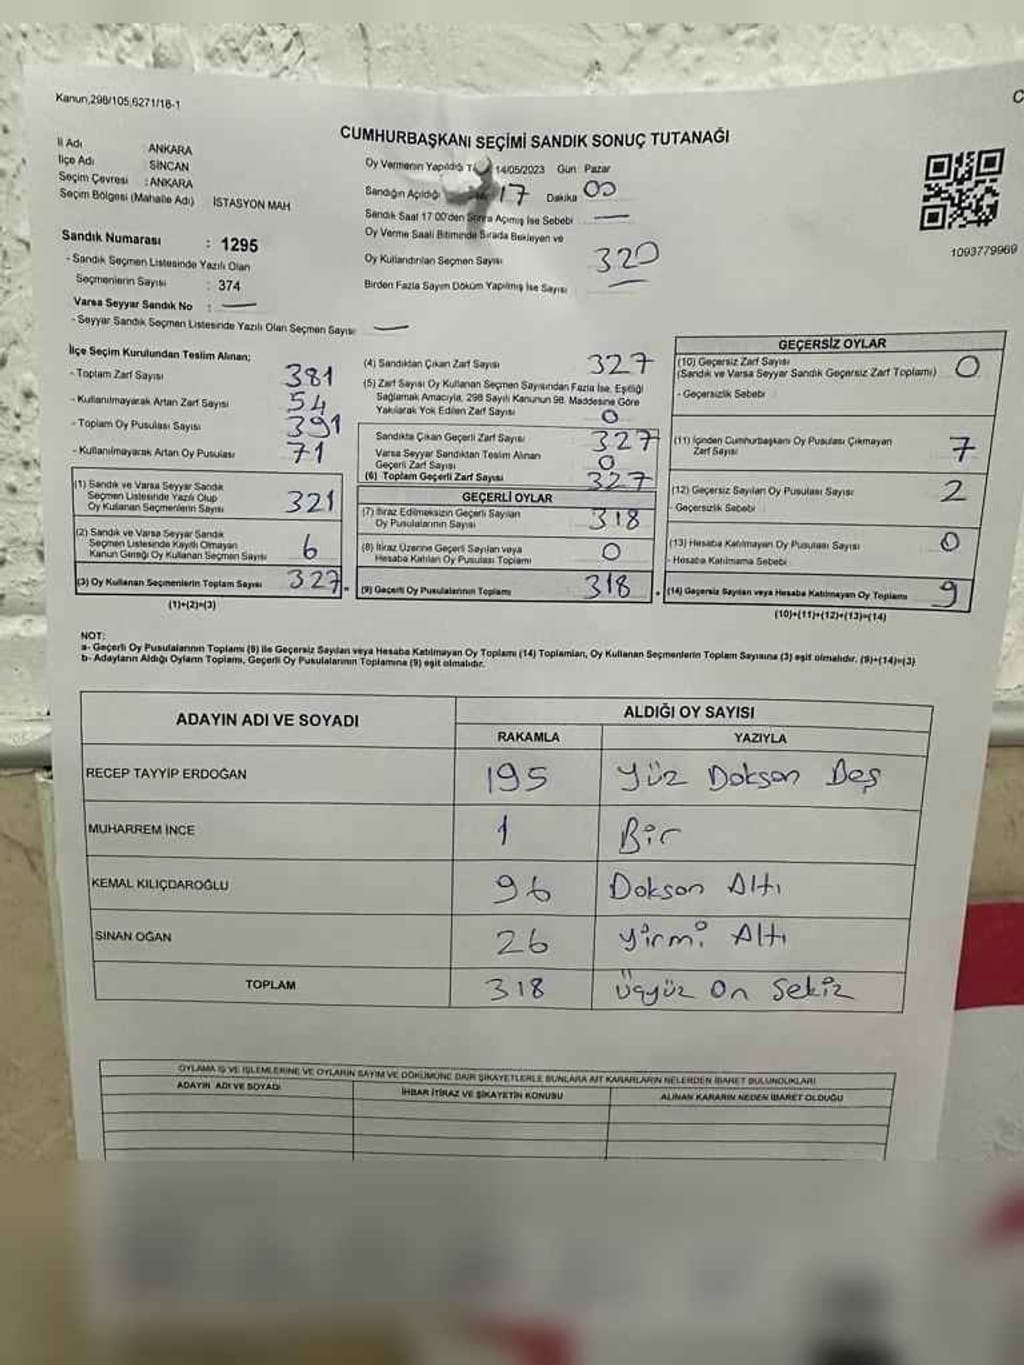 Kanun,298/105,6271/18-1
CUMHURBAŞKANI SEÇİMİ SANDIK SONUÇ TUTANAĞI
İl Adı : ANKARA
İlçe Adı SİNCAN
Seçim Çevresi : ANKARA
Seçim Bölgesi (Mahalle Adı) İSTASYON MAH
Oy Vermenin Yapıldığı 14/05/2023 Gün Pazar
Sandığın Açıldığı 17 Dakika 00
Sandık Saat 17:00'den Sonra Açmış İse Sebebi —
Oy Verme Saati Bitiminde Sırada Bekleyen ve
Oy Kullandırılan Seçmen Sayısı 320
Birden Fazla Sayım Döküm Yapılmış İse Sayısı —
1093779969
Sandık Numarası : 1295
- Sandık Seçmen Listesinde Yazılı Olan
Seçmenlerin Sayısı : 374
Varsa Seyyar Sandık No : —
- Seyyar Sandık Seçmen Listesinde Yazılı Olan Seçmen Sayısı —
İlçe Seçim Kurulundan Teslim Alınan;
- Toplam Zarf Sayısı 381
- Kullanılmayarak Artan Zarf Sayısı 54
- Toplam Oy Pusulası Sayısı 391
- Kullanılmayarak Artan Oy Pusulası 71
(1) Sandık ve Varsa Seyyar Sandık
Seçmen Listesinde Yazılı Olup
Oy Kullanan Seçmenlerin Sayısı 321
(2) Sandık ve Varsa Seyyar Sandık
Seçmen Listesinde Kayıtlı Olmayan
Kanun Gereği Oy Kullanan Seçmen Sayısı 6
(3) Oy Kullanan Seçmenlerin Toplam Sayısı 327
(1)+(2)=(3)
(4) Sandıktan Çıkan Zarf Sayısı 327
(5) Zarf Sayısı Oy Kullanan Seçmen Sayısından Fazla İse, Eşitliği
Sağlamak Amacıyla, 298 Sayılı Kanunun 98. Maddesine Göre
Yakılarak Yok Edilen Zarf Sayısı 0
Sandıkta Çıkan Geçerli Zarf Sayısı 327
Varsa Seyyar Sandıktan Teslim Alınan
Geçerli Zarf Sayısı 0
(6) Toplam Geçerli Zarf Sayısı 327
GEÇERLİ OYLAR
(7) İtiraz Edilmeksizin Geçerli Sayılan
Oy Pusulalarının Sayısı 318
(8) İtiraz Üzerine Geçerli Sayılan veya
Hesaba Katılan Oy Pusulası Toplamı 0
(9) Geçerli Oy Pusulalarının Toplamı 318
GEÇERSİZ OYLAR
(10) Geçersiz Zarf Sayısı
(Sandık ve Varsa Seyyar Sandık Geçersiz Zarf Toplamı) 0
- Geçersizlik Sebebi
(11) İçinden Cumhurbaşkanı Oy Pusulası Çıkmayan
Zarf Sayısı 7
(12) Geçersiz Sayılan Oy Pusulası Sayısı 2
- Geçersizlik Sebebi
(13) Hesaba Katılmayan Oy Pusulası Sayısı 0
- Hesaba Katılmama Sebebi
(14) Geçersiz Sayılan veya Hesaba Katılmayan Oy Toplamı 9
(10)+(11)+(12)+(13)=(14)
NOT:
a- Geçerli Oy Pusulalarının Toplamı (9) ile Geçersiz Sayılan veya Hesaba Katılmayan Oy Toplamı (14) Toplamları, Oy Kullanan Seçmenlerin Toplam Sayısına (3) eşit olmalıdır. (9)+(14)=(3)
b- Adayların Aldığı Oyların Toplamı, Geçerli Oy Pusulalarının Toplamına (9) eşit olmalıdır.
ADAYIN ADI VE SOYADI ALDIĞI OY SAYISI
RAKAMLA YAZIYLA
RECEP TAYYİP ERDOĞAN 195 Yüz Doksan Beş
MUHARREM İNCE 1 Bir
KEMAL KILIÇDAROĞLU 96 Doksan Altı
SİNAN OĞAN 26 Yirmi Altı
TOPLAM 318 Üçyüz On Sekiz
OYLAMA İŞ VE İŞLEMLERİNE VE OYLARIN SAYIM VE DÖKÜMÜNE DAİR ŞİKAYETLERLE BUNLARA AİT KARARLARIN NELERDEN İBARET BULUNDUKLARI
ADAYIN ADI VE SOYADI İHBAR İTİRAZ VE ŞİKAYETİN KONUSU ALINAN KARARIN NEDEN İBARET OLDUĞU